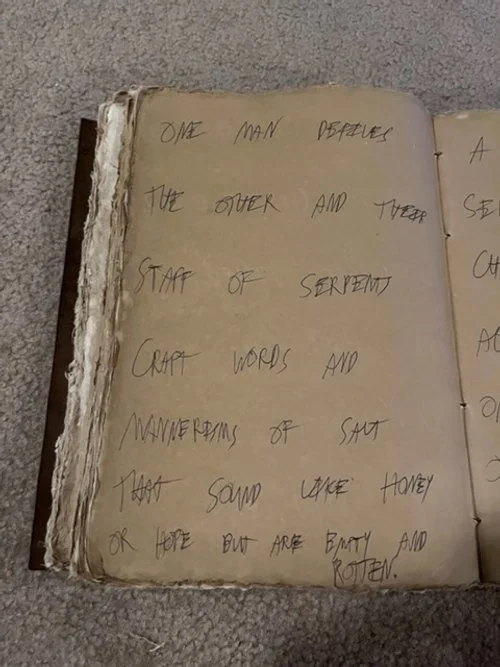 ONE MAN DEFILES
THE OTHER AND THEIR
STAFF OF SERPENTS
CRAFT WORDS AND
MANNERISMS OF SALT
THAT SOUND LIKE HONEY
OR HOPE BUT ARE EMTY AND
ROTTEN.
A
SE
CH
AC
O